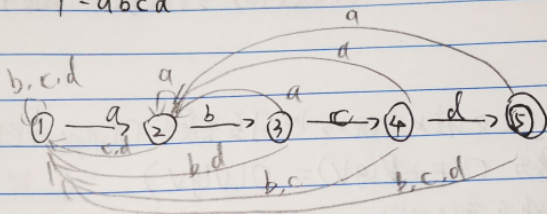 P = abcd
a
a
b, c, d a a
1 a 2 b 3 c 4 d 5
c, d
b, d
b, c b, c, d